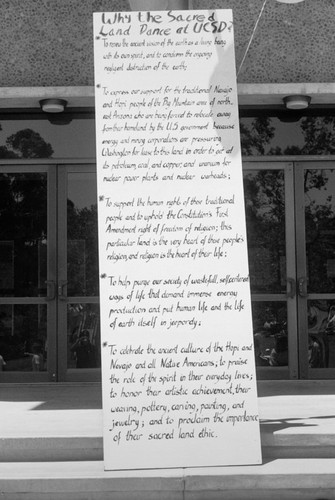 Why the Sacred
Land Dance at UCSD?
* To renew the ancient vision of the earth as a living being
with its own spirit, and to condemn the ongoing
negligent destruction of the earth;
* To express our support for the traditional Navajo
and Hopi people of the Big Mountain area of north-
east Arizona who are being forced to relocate away
from their homeland by the U.S. government because
energy and mining corporations are pressuring
Washington for lease to this land in order to get at
its petroleum, coal, and copper, and uranium for
nuclear power plants and nuclear warheads;
* To support the human rights of these traditional
people and to uphold the Constitution's First
Amendment right of freedom of religion; this
particular land is the very heart of these people's
religion, and religion is the heart of their life;
* To help purge our society of wastefull, self-centered
ways of life that demand immense energy
production and put human life and the life
of earth itself in jeopordy;
* To celebrate the ancient culture of the Hopi and
Navajo and all Native Americans; to praise
the role of the spirit in their everyday lives;
to honor their artistic achievement, their
weaving, pottery, carving, painting, and
jewelry; and to proclaim the importance
of their sacred land ethic.